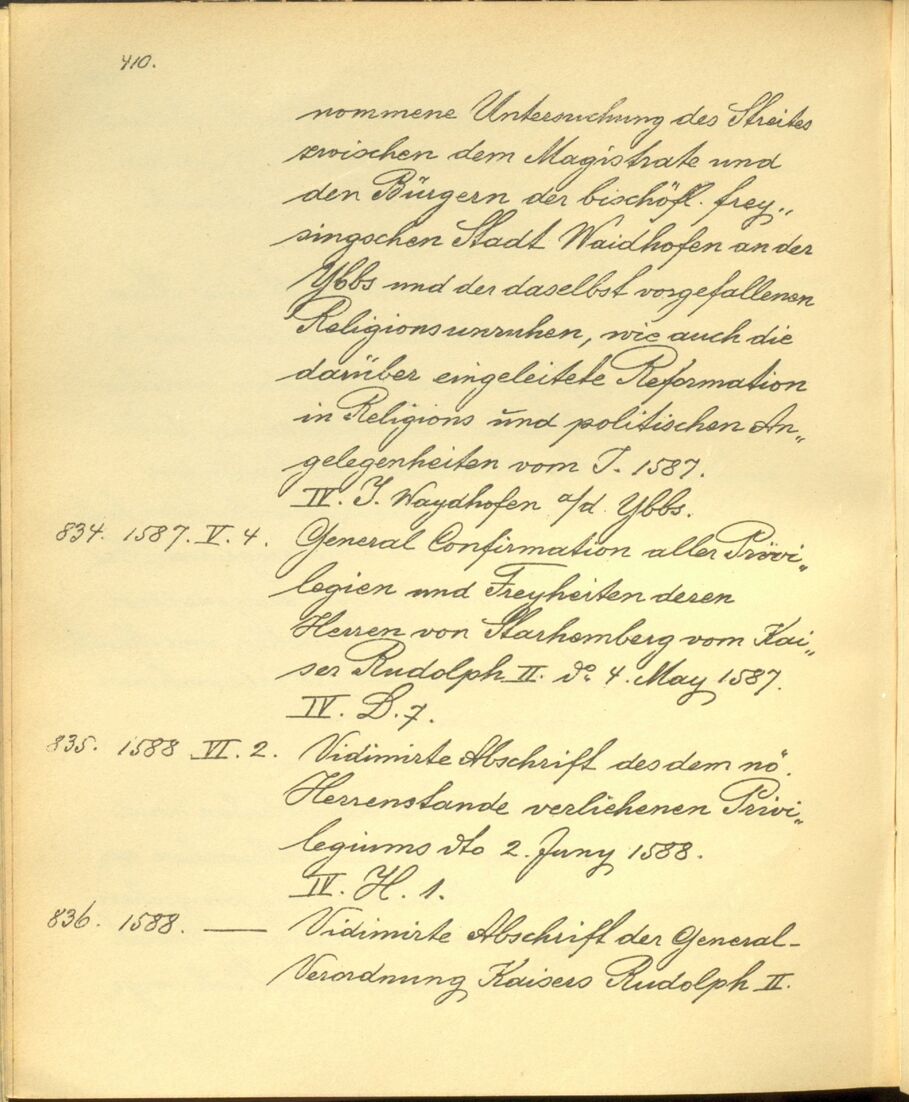 410.
nommene Untersuchung des Streites
zwischen dem Magistrate und
den Bürgern der bischöfl. frey„
singschen Stadt Waidhofen an der
Ybbs und der daselbst vorgefallenen
Religionsunruhen, wie auch die
darüber eingeleitete Reformation
in Religions und politischen An„
gelegenheiten vom J. 1587.
IV. J. Waydhofen a/d. Ybbs.
834. 1587. V. 4. General Confirmation aller Privi„
legien und Freyheiten deren
Herren von Starhemberg vom Kai„
ser Rudolph II. do 4. May 1587.
IV. D. 7.
835. 1588 VI. 2. Vidimirte Abschrift des dem nö.
Herrenstande verliehenen Privi„
legiums dto 2. Juny 1588.
IV. H. 1.
836. 1588. — Vidimirte Abschrift der General-
Verordnung Kaisers Rudolph II.